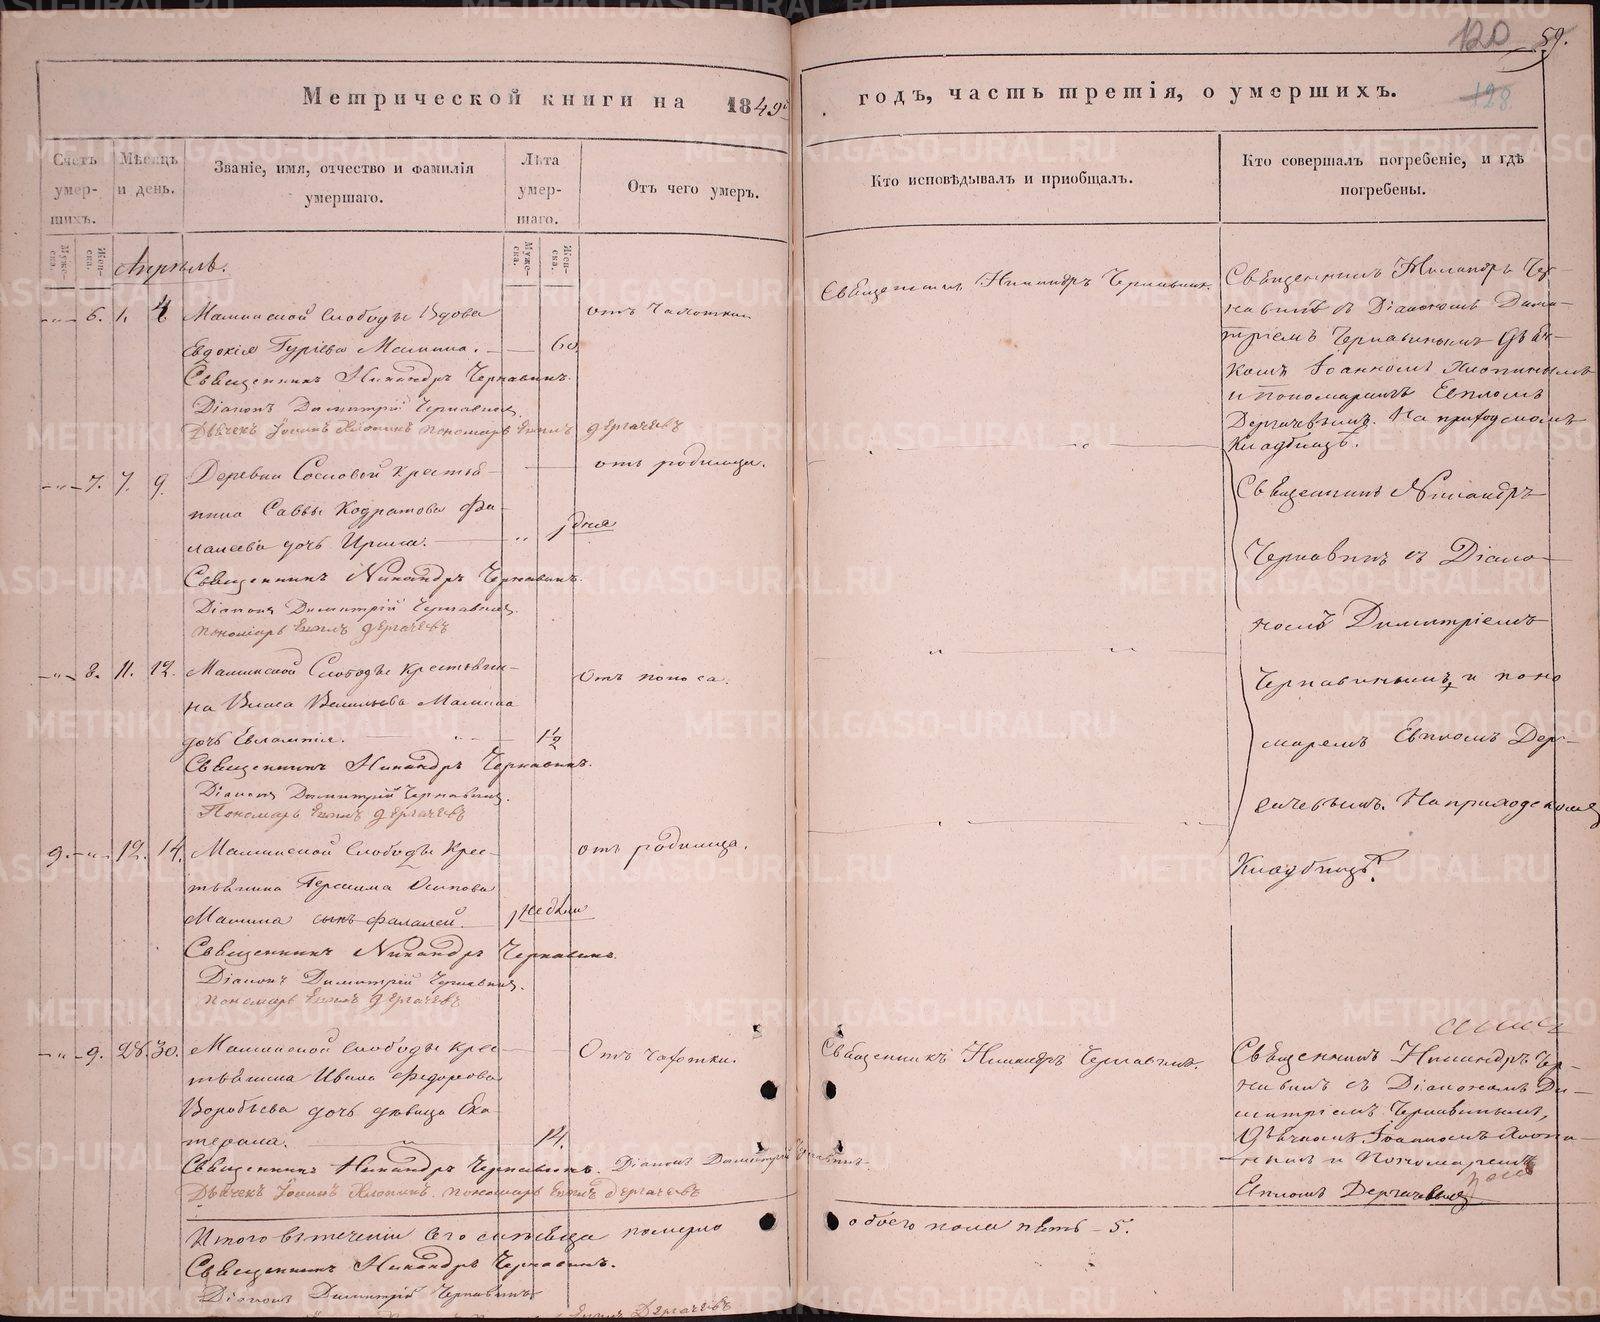 120 59.
128
Метрической книги на 1849й
годъ, часть третія, о умершихъ.
Счетъ умершихъ.
Мѣсяцъ и день.
Званіе, имя, отчество и фамилія умершаго.
Лѣта умершаго.
Отъ чего умеръ.
Кто исповѣдывалъ и приобщалъ.
Кто совершалъ погребеніе, и гдѣ погребены.
Муже-ска.
Жен-ска.
Муже-ска.
Жен-ска.
Апрѣль.
6. 1. 4 Маминской Слободы Вдова
Евдокія Гуріева Мамина. 60
отъ чахотки
Священникъ Никандръ Чернавинъ.
Діаконъ Димитрій Чернавинъ.
Дьячекъ Іоаннъ Хлопинъ пономарь Евплъ Дергачевъ
Священникъ Никандръ Чернавинъ.
Священникъ Никандръ Чер-
навинъ съ Діакономъ Дими-
тріемъ Чернавинымъ Дьяч-
комъ Іоанномъ Хлопинымъ
и пономаремъ Евпломъ
Дергачевымъ. На приходскомъ
Кладбищѣ.
7. 7. 9. Деревни Сосновой крестья-
нина Саввы Кодратова Фа-
лалеева дочь Ирина. дня
отъ родимца.
Священникъ Никандръ Чернавинъ.
Діаконъ Димитрій Чернавинъ.
пономарь Евплъ Дергачевъ
Священникъ Никандръ
Чернавинъ съ Діако-
номъ Димитріемъ
Чернавинымъ и поно
маремъ Евпломъ Дер-
гачевымъ. На приходскомъ
Кладбищѣ.
8. 11. 12. Маминской Слободы крестьяни-
на Власа Васильева Мамина
дочь Евлампія. 1 1/2
Отъ поноса.
Священникъ Никандръ Чернавинъ.
Діаконъ Димитрій Чернавинъ.
Пономарь Евплъ Дергачевъ
9. 12. 14. Маминской Слободы Крес-
тьянина Герасима Осипова
Мамина сынъ Фалалей. недѣли
отъ родимца.
Священникъ Никандръ Чернавинъ.
Діаконъ Димитрій Чернавинъ.
пономарь Евплъ Дергачевъ
9. 28. 30. Маминской слободы крес-
тьянина Ивана Федорова
Воробьева дочь дѣвица Ека-
терина. 14.
Отъ чахотки.
Священникъ Никандръ Чернавинъ. Діаконъ Димитрій Чернавинъ.
Дьячекъ Іоаннъ Хлопинъ. пономарь Евплъ Дергачевъ
Священникъ Никандръ Чернавинъ.
Священникъ Никандръ Чер-
навинъ съ Діакономъ Ди-
митріемъ Чернавинымъ,
Дьячкомъ Іоанномъ Хлопи-
нымъ и Пономаремъ
Евпломъ Дергачевымъ
Итого въ теченіи сего мѣсяца померло
обоего пола пять - 5.
Священникъ Никандръ Чернавинъ.
Діаконъ Димитрій Чернавинъ
Евплъ Дергачевъ
METRIKI.GASO-URAL.RU